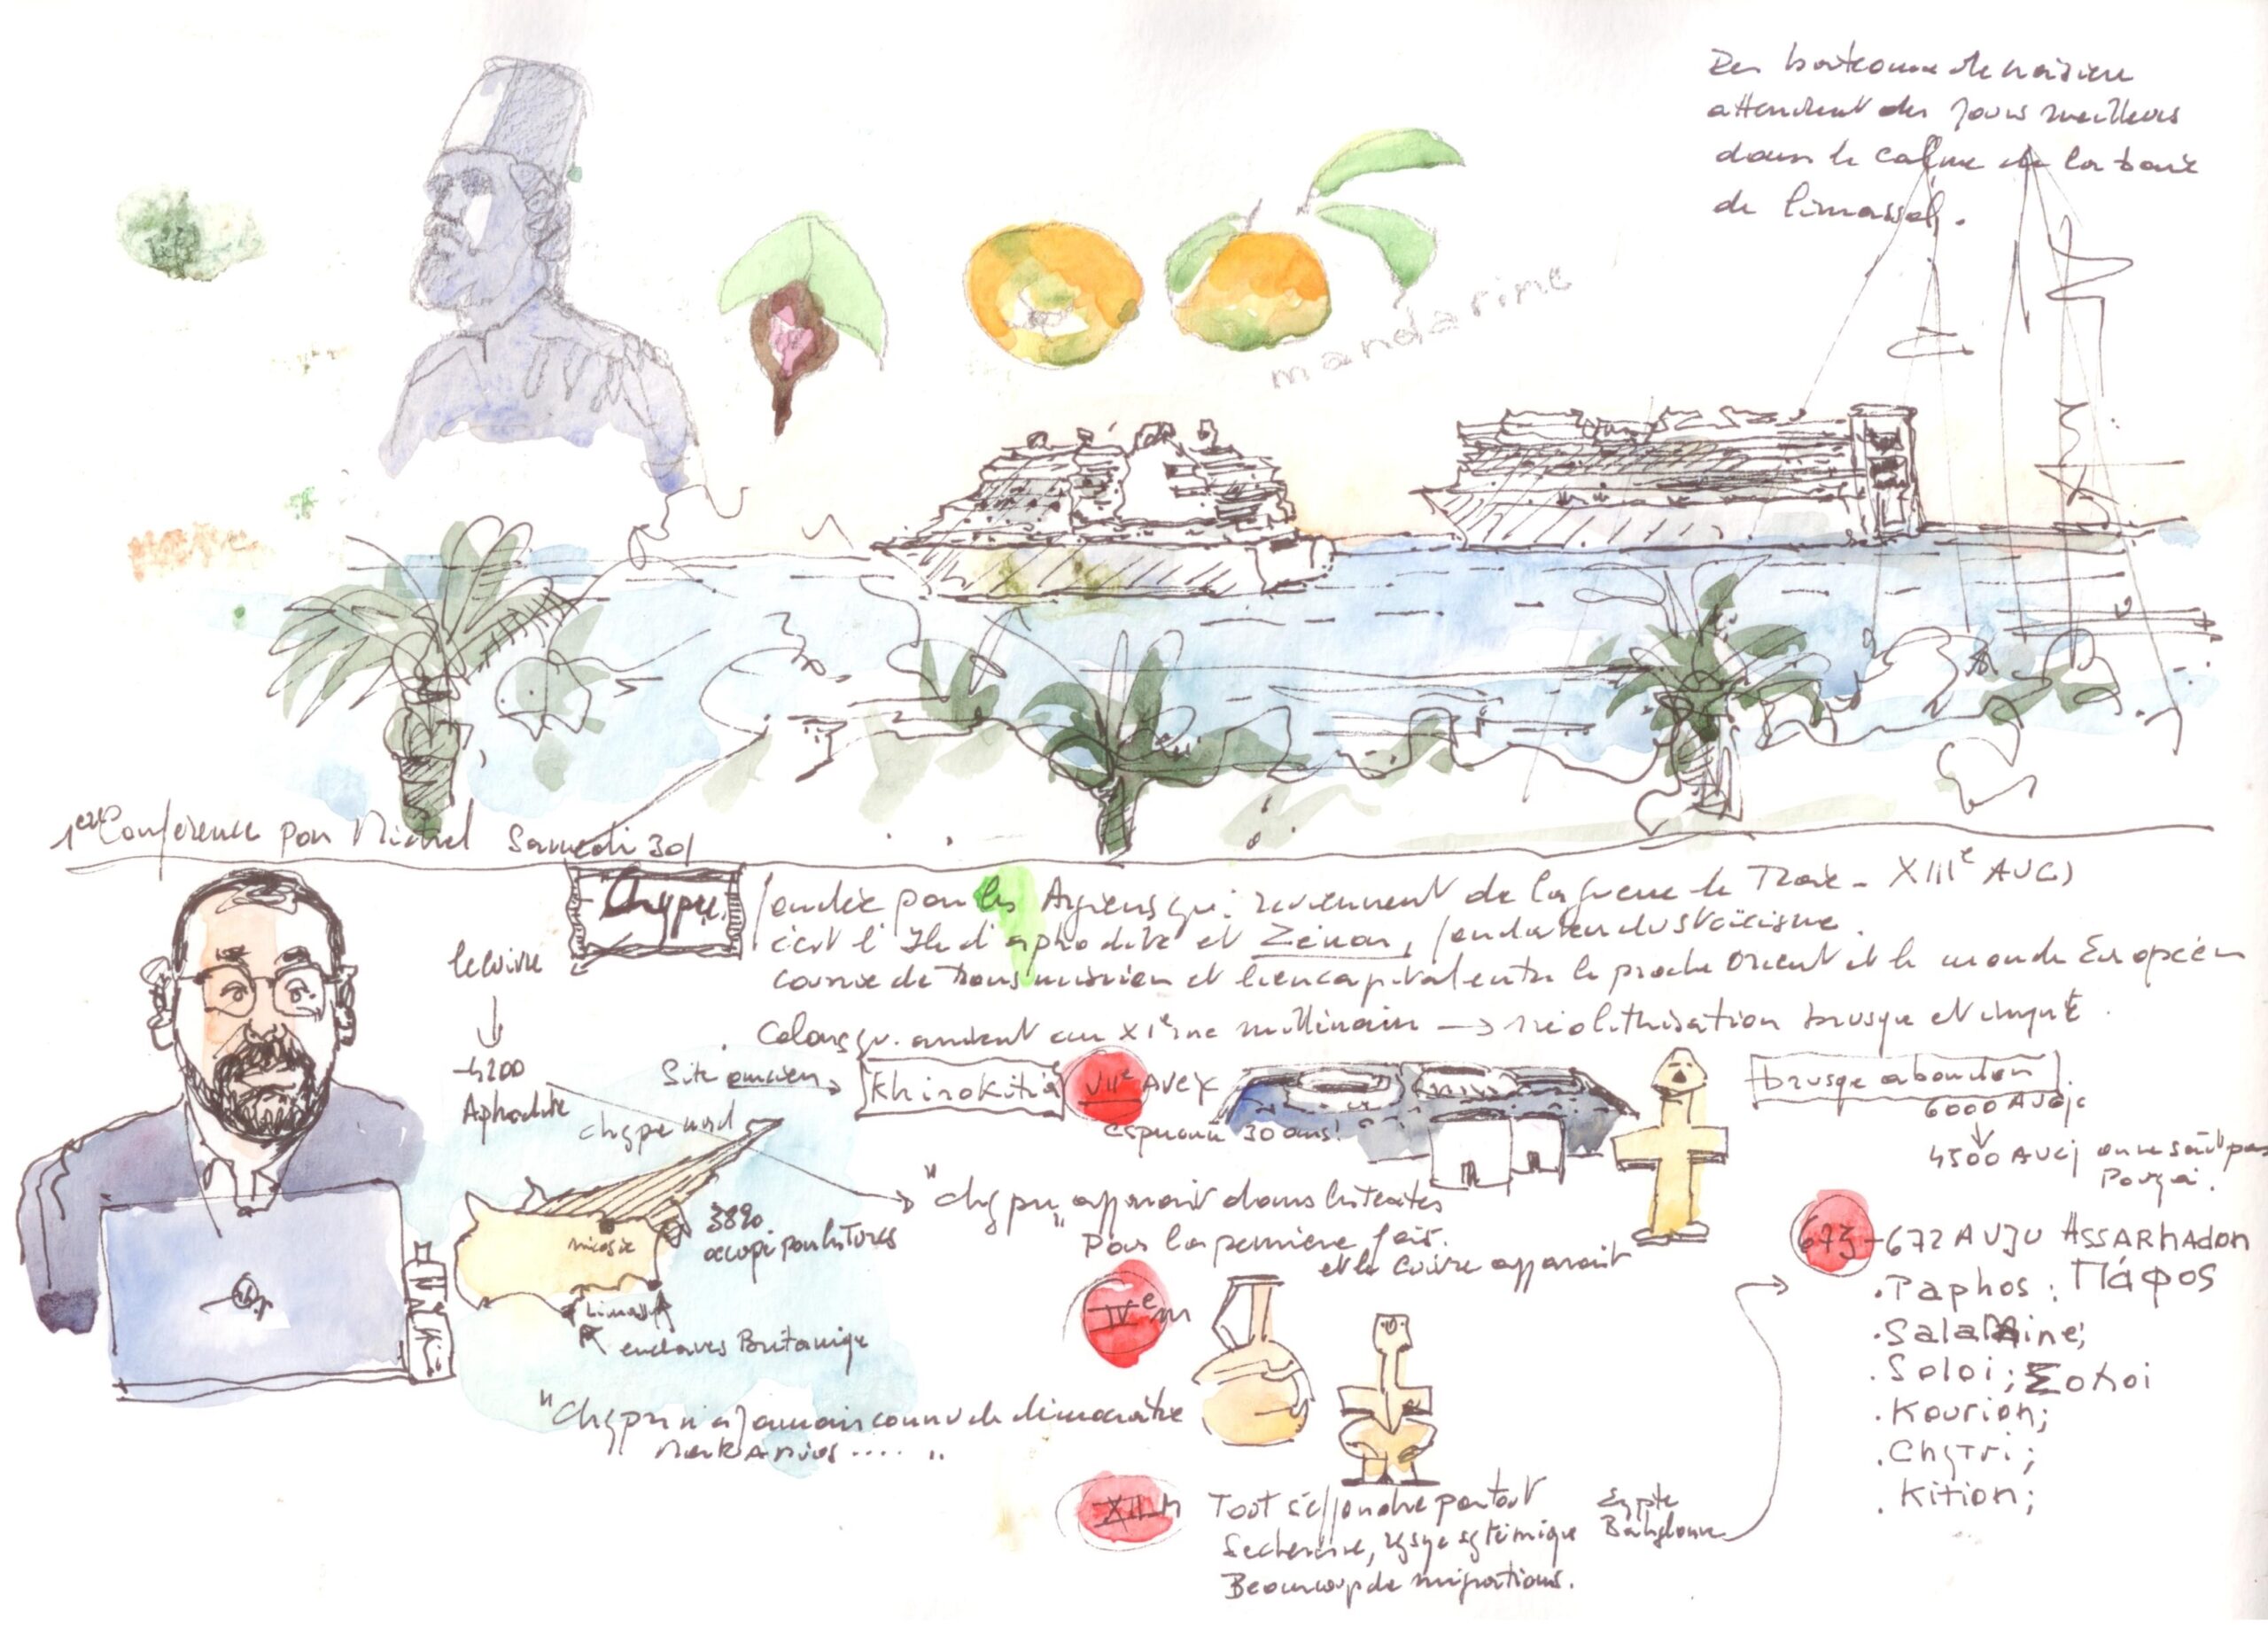 Des bateaux de croisière
attendent des jours meilleurs
dans le calme de la baie
de limassol.
mandarine
1ere Conférence par Michel Samedi 30/
Chypre
fondée par les Argiens qui reviennent de la guerre de Troie - XIIIe AVCJ
c'est l'Ile d'aphrodite et Zénon, fondateur du stoïcisme.
courroie de transmission et lien capital entre le proche Orient et le monde Européen
le cuivre
Colons qui arrivent au XIeme millénaire → néolithisation brusque et
-4200
Aphrodite
Site ancien →
Khirokitia
VIIe AVCJC
esperance 30 ans!
brusque abandon
6000 AVCJC
4500 AVCJ on ne sait pas
Pourquoi.
chypre nord
38%
occupé par les turcs
nicosie
Limassol
enclaves Britanique
"Chypre" apparait dans les textes
Pour la première fois.
et le Cuivre apparait
IVe m
673-672 AVJC ASSARHADON
. Paphos : Πάφος
. Salamine;
. Soloi; Σολοι
. Kourion;
. Chytri;
. Kition;
"Chypre n'a jamais connu de démocratie
.... "
XII M
Tout s'effondre partout
Secheresse, systémique
Beaucoup de migrations.
Egypte
Babylone